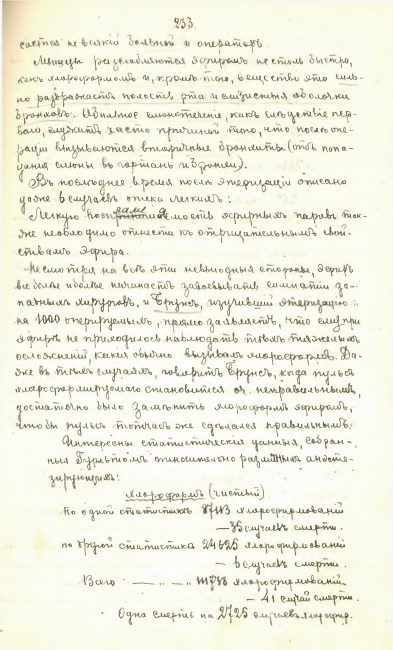 233.
сается не всякій больной и операторъ.
Мышцы разслабляются эфиромъ не столь быстро,
какъ хлороформомъ и, кромѣ того, вещество это силь-
но раздражаетъ полость рта и слизистыя оболочки
бронховъ. Обильное слюнотеченіе, какъ слѣдствіе пер-
ваго, служитъ часто причиной того, что послѣ опе-
раціи вызываются бронхиты (отъ попа-
данія слюны въ гортань и бронхи).
Въ послѣднее время послѣ этеризаціи описано
даже 8 случаевъ отека легкихъ.
Легкую воспламеняемость эфирныхъ паровъ так-
же необходимо отнести къ отрицательнымъ свой-
ствамъ эфира.
Несмотря на всѣ эти невыгодныя стороны, эфиръ
все болѣе и болѣе начинаетъ завоевывать симпатіи за-
падныхъ хирурговъ, и Брунсъ, изучившій этеризацію
на 1000 оперируемыхъ, прямо заявляетъ, что ему при
эфирѣ не приходилось наблюдать тѣхъ тяжелыхъ
осложненій, какія обычно вызывалъ хлороформъ. Да-
же въ тѣхъ случаяхъ, говоритъ Брунсъ, когда пульсъ
хлороформируемаго становится неправильнымъ,
достаточно было замѣнить хлороформъ эфиромъ,
чтобы пульсъ тотчасъ же сдѣлался правильнымъ.
Интересны статистическія данныя, собран-
ныя Гурльтомъ относительно различныхъ анэсте-
зирующихъ:
Хлороформъ (чистый)
По одной статистикѣ хлороформированій
— 35 случаевъ смерти.
по другой статистикѣ 24625 хлороформированій
— 6 случаевъ смерти.
Всего — „ — „ хлороформированій
— 41 случай смерти.
Одна смерть на 2725 случаевъ хлороф.